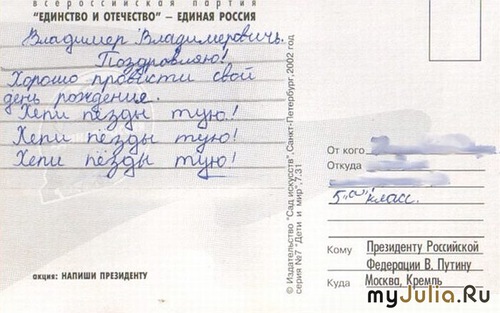 всероссийская партия
"ЕДИНСТВО И ОТЕЧЕСТВО" – ЕДИНАЯ РОССИЯ
Владимер Владимеровичь.
Поздровляю!
Хорошо провести свой
день рождения.
Хепи пёзды тую!
Хепи пёзды тую!
Хепи пёзды тую!
акция: НАПИШИ ПРЕЗИДЕНТУ
© Издательство "Сад искусств", Санкт-Петербург, 2002 год
серия №7 "Дети и мир", 7.31
От кого
Откуда
5 "а" класс.
Кому Президенту Российской
Федерации В. Путину
Куда Москва, Кремль
myJulia.Ru